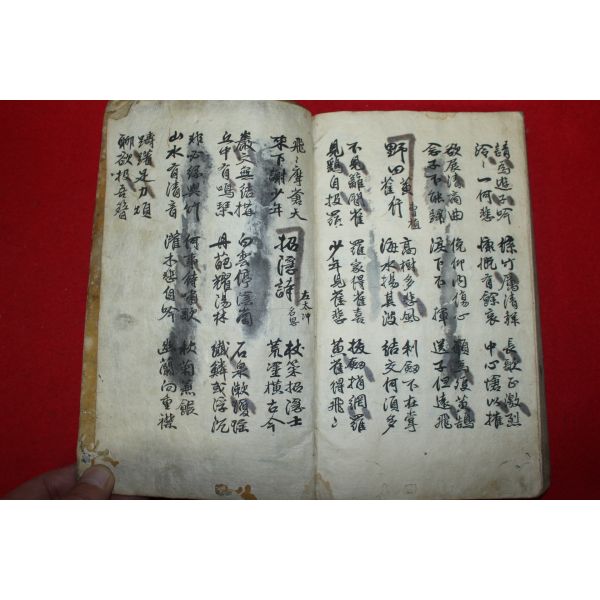 請爲遊子吟 絲竹厲清聲 長歌正激烈
泠〻一何悲 慷慨有餘哀 中心愴以摧
欲展清商曲 俛仰內傷心 願爲雙黃鵠
念子不能歸 淚下不揮 送子俱遠飛
野田黃雀行 曹植 高樹多悲風 利劍不在掌
海水揚其波 結交何須多
不見籬間雀 羅家得雀喜 拔劍捎網羅
見鷂自投羅 少年見雀悲 黃雀得飛〻
飛〻摩蒼天 招隱詩 左太冲 名思 杖策招隱士
來下謝少年 荒塗橫古今
巖穴無結構 白雲停陰岡 石泉漱瓊瑤
丘中有鳴琴 丹葩耀陽林 纖鱗或浮沉
非必絲與竹 何事待嘯歌 秋菊兼餱
山水有清音 灌木悲自吟 幽蘭間重襟
躊躇足力煩
聊欲投吾簪